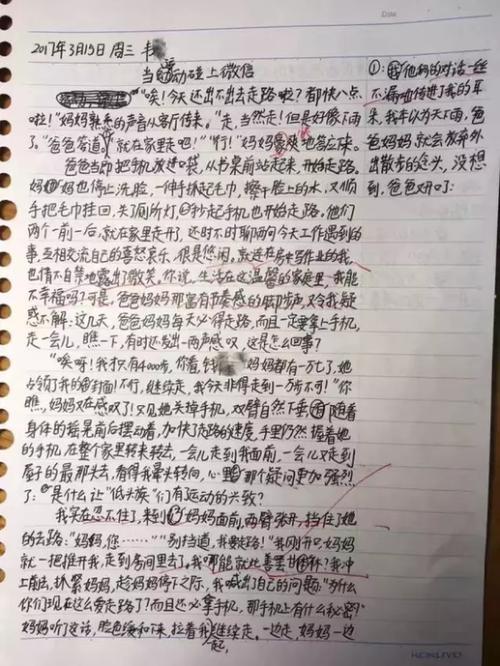 2017年3月15日 周三
当运动碰上微信
“唉！今天还出不出去走路啦？都快八点
啦！”妈妈熟悉的声音从客厅传来。“走，当然走！但是好像下雨
了。”爸爸答道，“就在家里走吧！”“行！”妈妈爽快地答应来。
爸爸当即把手机放进口袋，从书桌前站起来，开始走路。
妈妈也停止洗脸，一伸手抓起毛巾，擦干脸上的水，又顺
手把毛巾挂回，关了厕所灯，抄起手机也开始走路。他们
两个一前一后，就在家里走开了，还时不时聊两句今天工作遇到的
事，互相交流自己的喜怒哀乐，很是悠闲，就连在房中写作业的我，
也情不自禁地露出了微笑。你说，生活在这温馨的家庭里，我能
不幸福吗？可是，爸爸妈妈那富有节奏感的脚步声，又令我疑
惑不解：这几天，爸爸妈妈每天必得走路，而且一定要拿上手机，
走一会儿，瞧一下，有时还发出一两声感叹，这是怎么回事？
“唉呀！我才只有4000步，你看，钱 妈妈都有一万七了，她
占领了我的封面！不行，继续走，我今天非得走到一万步不可！”你
瞧，妈妈又在感叹了！只见她关掉手机，双臂自然下垂，随着
身体的摇晃前后摆动着，加快了走路的速度，手里仍然握着她
的手机，在整个家里转来转去，一会儿走到我面前，一会儿又走到
屋子的最那头去，看得我晕头转向，心里那个疑问更加强烈
了：是什么让“低头族”们有运动的兴致？
我实在忍不住了，来到妈妈面前，两臂张开，挡住了她
的去路：“妈妈，您……”“别挡道，我要走路！”我刚开口，妈妈
就一把推开我，走到房间里去了，我哪能就此善罢甘休？我冲
上前去，抓紧妈妈，趁妈妈停下之际，我喊出了自己的问题：“为什么
你们现在这么爱走路了？而且还必拿手机，那手机上有什么秘密？”
妈妈听了这话，脸色缓和下来，拉着我一起继续走。一边走，妈妈一边
①：他们的对话一丝
不漏地传进了我的耳
朵，我本以为天下雨，爸
爸妈妈就会放弃外
出散步的念头，没想
到，爸爸好口：
Date
KOKUYO